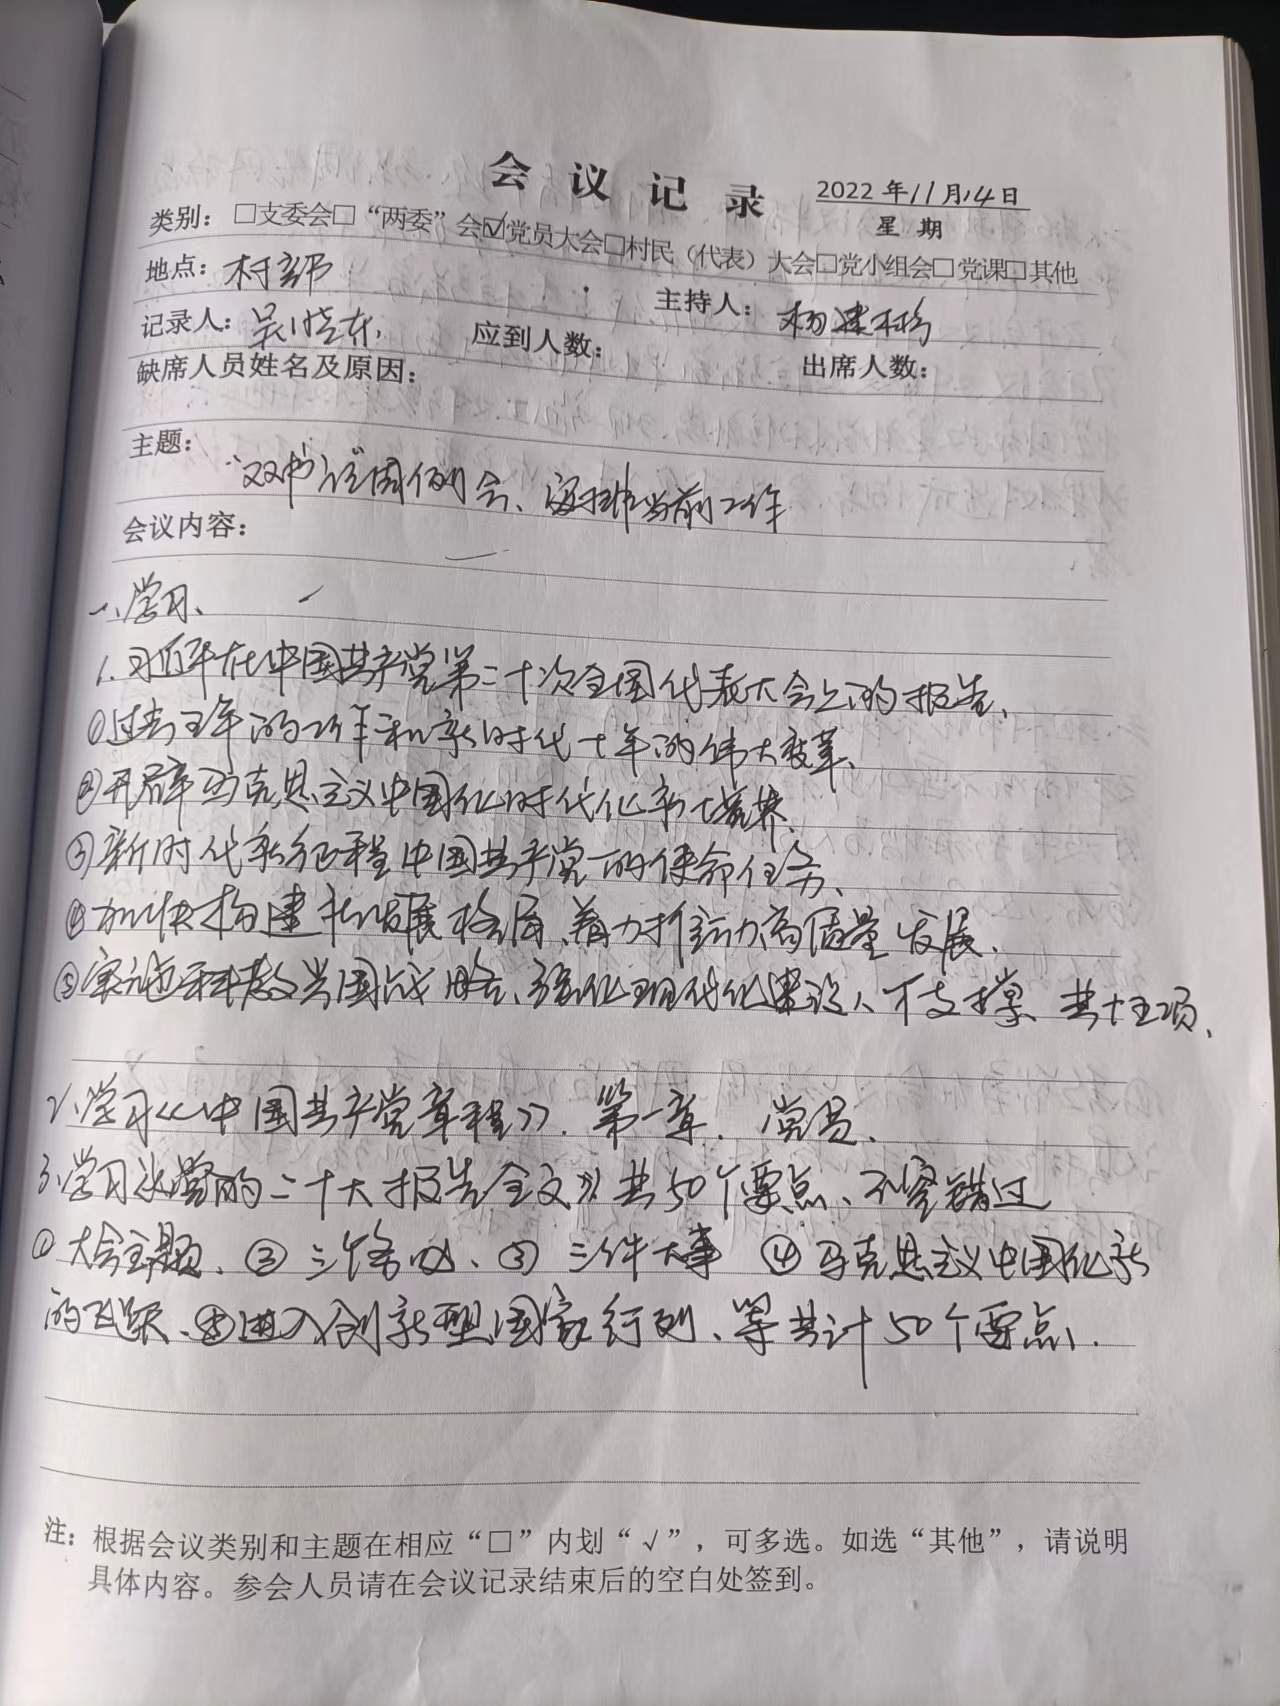 会议记录
2022年11月14日
星期
类别：□支委会□“两委”会☑党员大会□村民（代表）大会□党小组会□党课□其他
地点：村部
主持人：杨建
记录人：吴晓东
应到人数：
缺席人员姓名及原因：
出席人数：
主题：
“双书记”周例会、安排当前工作
会议内容：
一、学习、
1、习近平在中国共产党第二十次全国代表大会上的报告、
①过去五年的工作和新时代十年的伟大变革、
②开辟马克思主义中国化时代化新境界、
③新时代新征程中国共产党的使命任务、
④加快构建新发展格局、着力推动高质量发展、
⑤实施科教兴国战略、强化现代化建设人才支撑、共十五项、
2、学习《中国共产党章程》、第一章、党员、
3、学习党的二十大报告全文》共50个要点、不容错过
①大会主题、②三个务必、③三件大事 ④马克思主义中国化新
的飞跃、⑤进入创新型国家行列、等共计50个要点、
注：根据会议类别和主题在相应“□”内划“√”，可多选。如选“其他”，请说明
具体内容。参会人员请在会议记录结束后的空白处签到。